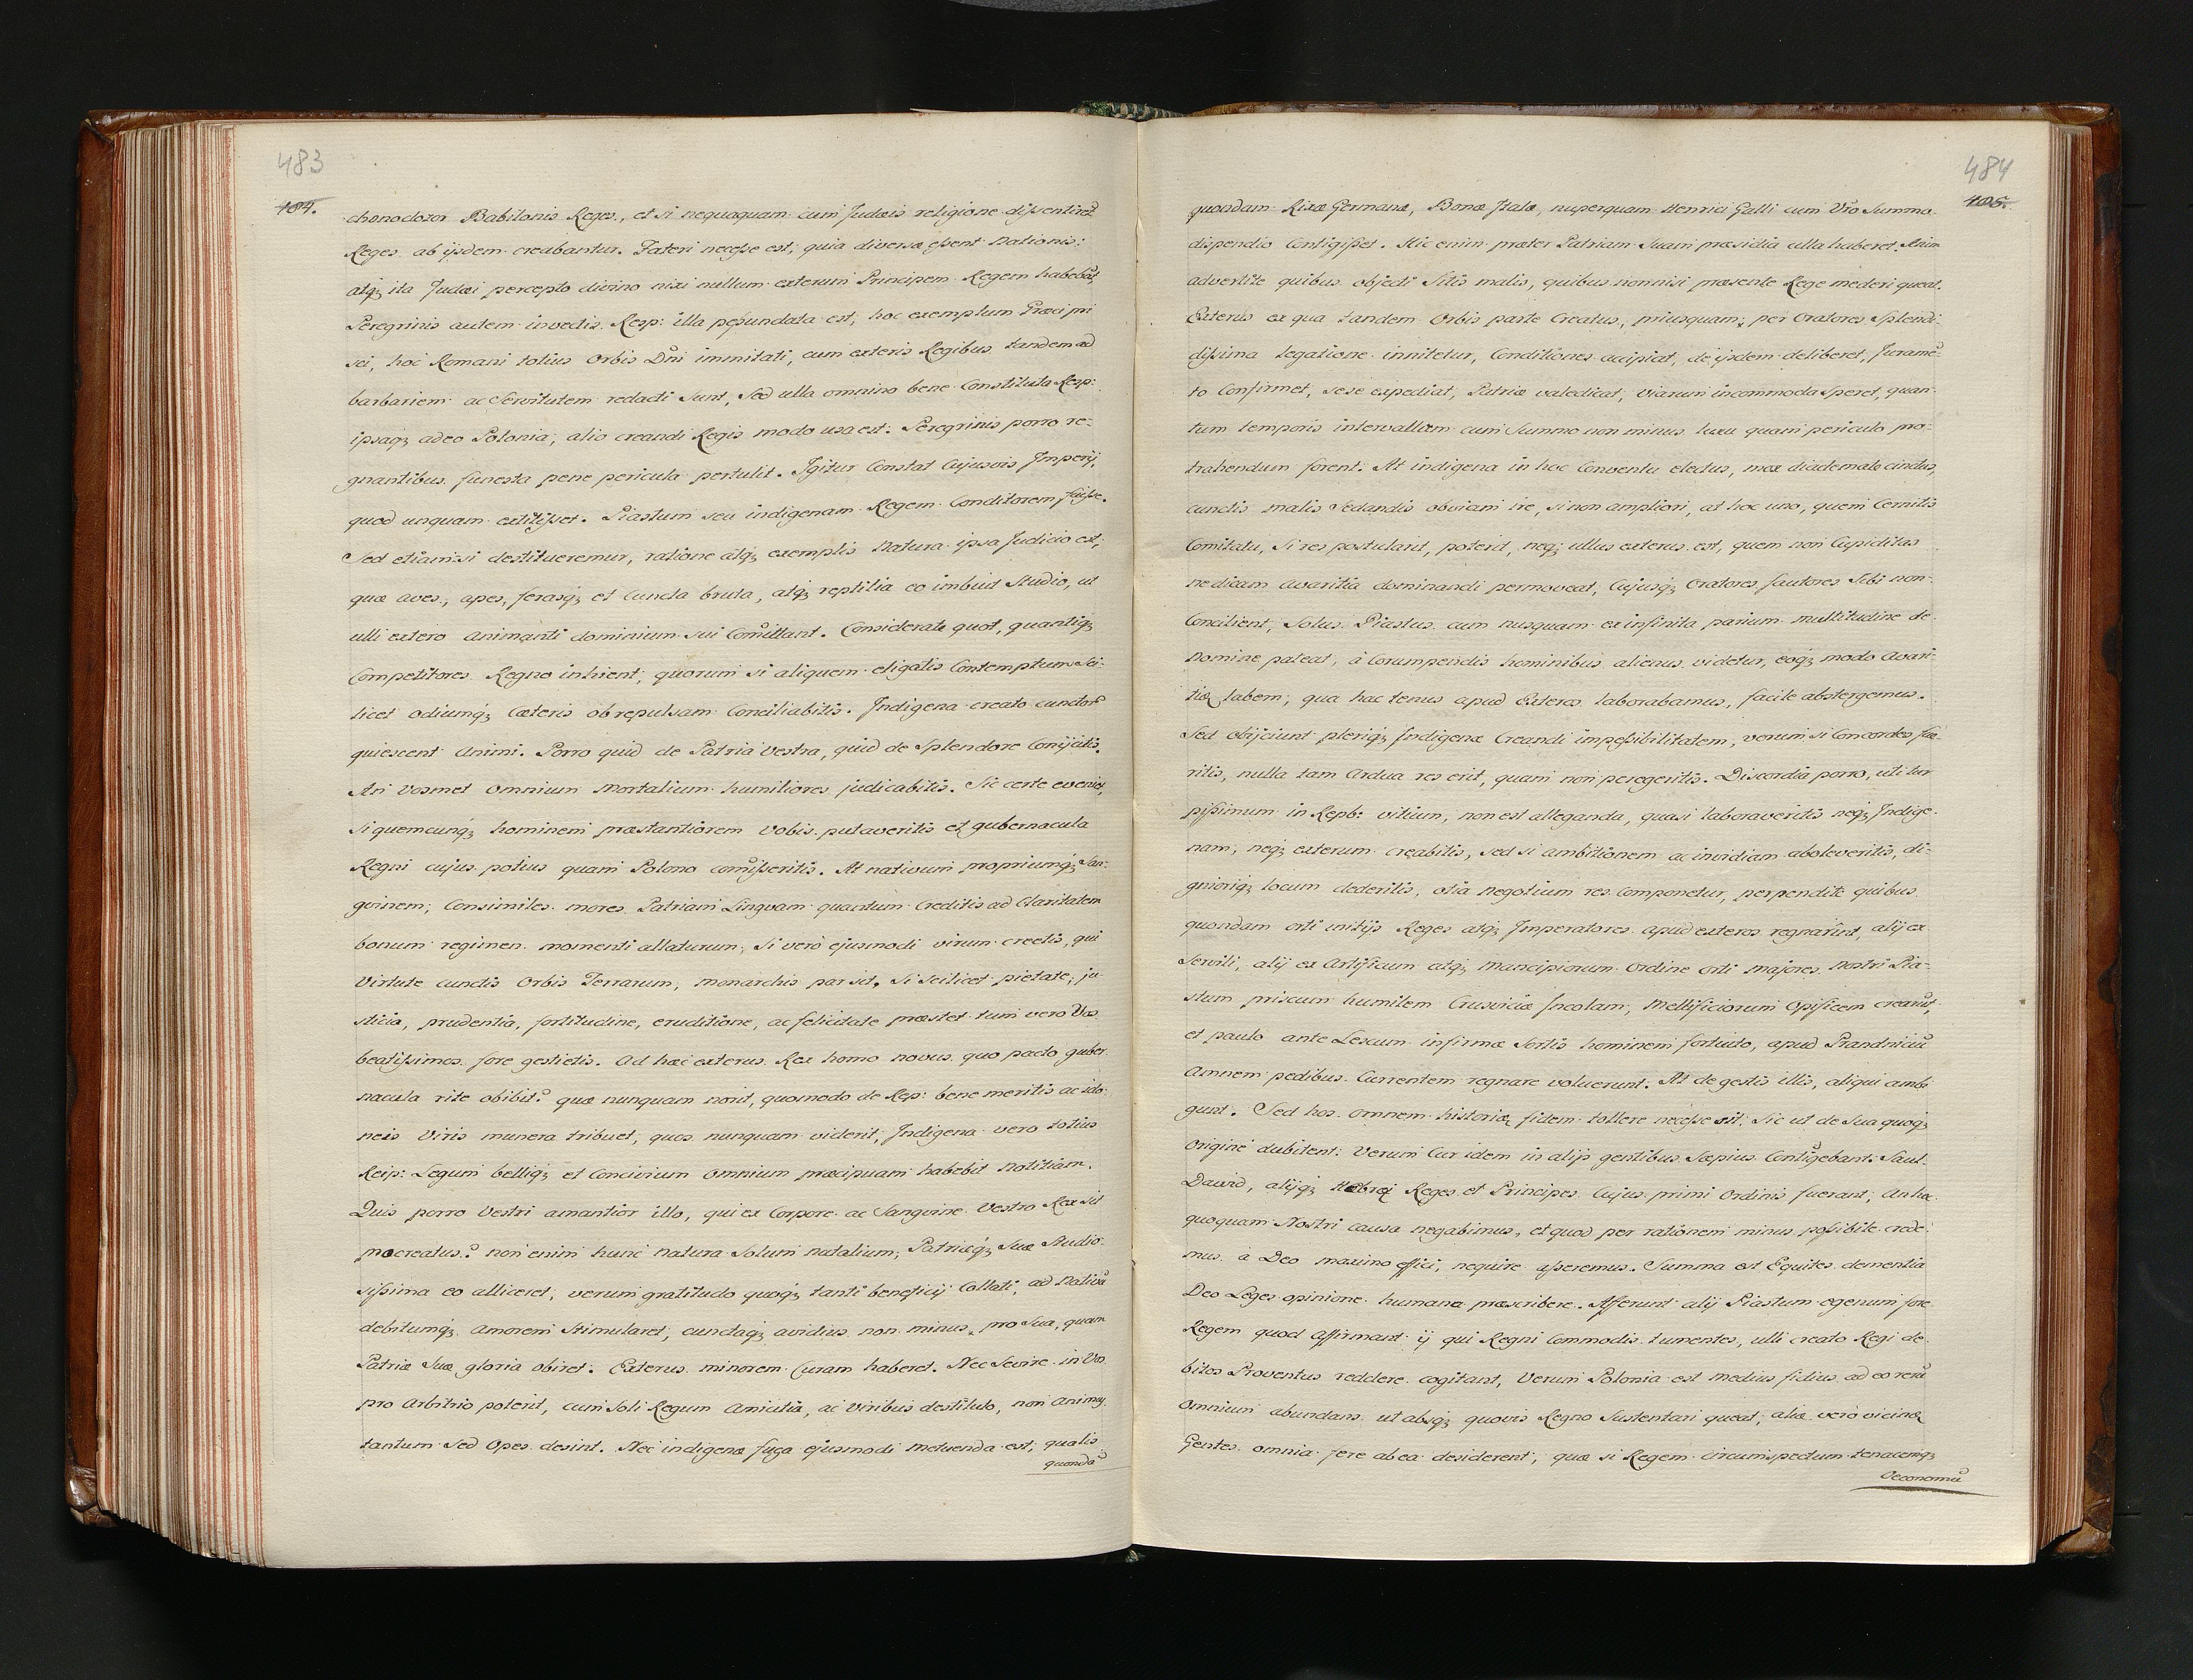 483
184.
chonodozor Babilonis Reges, et si nequaquam cum Judæis religione dissentiret
Reges ab ijsdem creabantur. Fateri necesse est, quia diversæ essent Nationis:
atq; ita Judæi percepto divino nisi nullum exterum Principem Regem habebāt,
Peregrinis autem invectis Resp: illa pessundata est, hoc exemplum Græci pri
sci, hoc Romani totius Orbis Dn̄i immitati, cum exteris Regibus tandem ad
barbariem ac Servitutem redacti sunt, Sed ulla omnino bene Constituta Resp:
ipsaq; adeo Polonia, alio creandi Regis modo usa est. Peregrinis porro re-
gnantibus funesta pene pericula pertulit. Igitur Constat Cujusvis Imperij,
quod unquam extitisset. Piastum seu indigenam Regem Conditorem fuisse.
Sed etiamsi destitueremur, ratione atq; exemplis Natura ipsa Judicio est,
quæ aves, apes, ferasq; et Cuncta bruta, atq; reptilia eo imbuit Studio, ut
ulli extero Animanti dominium sui Com̄ittant. Considerate quot, quantiq;
Competitores Regno inhient; quorum si aliquem eligatis Contemptum Sci-
licet odiumq; Cæteris ob repulsam Conciliabitis. Indigena creato cunctor̄
quiescent Animi. Porro quid de Patria Vestra, quid de Splendore Conijcitis.
An Vosmet Omnium Mortalium humiliores judicabitis. Sic certe eveniet,
si quemcunq; hominem præstantiorem Vobis putaveritis et gubernacula
Regni cujus potius quam Polono com̄iseritis. At nativum propriumq; San-
gvinem, Consimiles mores Patriam Lingvam quantum Creditis ad Claritatem
bonum regimen momenti allaturum; Si verò ejusmodi virum creetis, qui
Virtute cunctis Orbis Terrarum, monarchis par sit, Si scilicet pietate, ju-
sticia, prudentia, fortitudine, eruditione, ac felicitate præstet tum vero Vos
beatissimos fore gestietis. Ad hæc exterus Rex homo novus quo pacto guber-
nacula rite obibit? quæ nunquam norit, quomodo de Rep: bene meritis ac ido-
neis Viris munera tribuet, quos nunquam viderit; Indigena vero totius
Reip: Legum belliq; et Concivium omnium præcipuam habebit Notitiam.
Quis porro Vestri amantior illo, qui ex Corpore ac Sangvine Vestro Rex sit
procreatus? non enim hunc natura Solum natalium, Patriæq; Suæ Studio-
sissima eo alliceret, verum gratitudo quoq; tanti beneficij Collati, ad Nativū
debitumq; Amorem Stimularet, cunctaq; avidius non minus, pro Sua, quam
Patriæ Suæ gloria obiret. Exterus minorem Curam haberet. Nec Sevire in Vos
pro Arbitrio poterit, cum Soli Regum Amicitia, ac Viribus destituto, non Animus
tantum Sed Opes desint. Nec indigenæ fuga ejusmodi metuenda est, qualis
quondā
484
105.
quondam Rixæ Germanæ, Bonæ Italæ, nuperquam Henrici Galli cum Vr̄o Summo
dispendio Contigisset. Hic enim præter Patriam Suam præsidia ulla haberet. Anim
advertite quibus objecti Sitis malis, quibus nonnisi præsente Rege mederi queat.
Exterus ex qua tandem Orbis parte Creatus, priusquam, per Oratores Splendi-
dissima legatione innitetur, Conditiones accipiat, de ijsdem deliberet, Juramē-
to Confirmet, sese expediat, Patriæ valedicat, Viarum incommoda Speret, quan-
tum temporis intervallum cum Summo non minus luxu quam periculo pro-
trahendum forent. At indigena in hoc Conventu electus, mox diademate cinctus,
cunctis malis Sedandis obviam ire, si non ampliori, at hoc uno, quem Cernitis
Comitatu, Si res postularit, poterit, neq; ullus exterus est, quem non Cupiditas
ne dicam avaritia dominandi permoveat, Cujusq; Oratores fautores Sibi non
Concilient, Solus Piastus cum nusquam ex infinita parium multitudine de
Nomine pateat, à Corumpendis hominibus alienus videtur, eoq; modo Avari-
tiæ labem, qua hactenus apud Exteros laborabamus, facile abstergemus.
Sed objiciunt pleriq; Indigenæ Creandi impossibilitatem, verum si Concordes fue-
ritis, nulla tam Ardua res erit, quam non peregeritis. Discordia porro, uti tur
pissimum in Repb: vitium, non est alleganda, quasi laboraveritis neq; Indige-
nam, neq; exterum creabitis, sed si ambitionem ac invidiam aboleveritis, di-
gnioriq; locum dederitis, otia negotium res Componetur, perpendite quibus
quondam orti initijs Reges atq; Imperatores apud exteros regnarint, alij ex
Servili, alij ex Artificum atq; Mancipiorum Ordine orti majores Nostri Pia-
stum priscum humilem Crusviciæ Incolam, Mellificiorum Opificem crearūt,
et paulo ante Lescum infirmæ Sortis hominem fortuito, apud Prandnicū
Amnem pedibus Currentem regnare voluerunt. At de gestis illis, aliqui ambi
gunt. Sed hos omnem historiæ fidem tollere necesse sit, Sic ut de Sua quoq;
Origine dubitent. Verum Cur idem in alijs gentibus Sæpius Contigebant: Saul
Dawid, alijq; Hebræi Reges et Principes Cujus primi Ordinis fuerant, An hæc
quoquam Nostri causa negabimus, et quod per rationem minus possibile crede-
mus à Deo maximo effici, nequire asseremus. Summa est Equites dementia
Deo Leges opinione humana præscribere. Afferunt alij Piastum egenum fore
Regem quod affirmant ij qui Regni Commodis tumentes, ulli creato Regi de-
bitos Proventus reddere cogitant, Verum Polonia est medius fidius ad eo rerū
Omnium abundans ut absq; quovis Regno Sustentari queat, aliæ verò vicinæ
Gentes omnia fere ab ea desiderent, quæ si Regem Circumspectum tenacemq;
Oeconomū